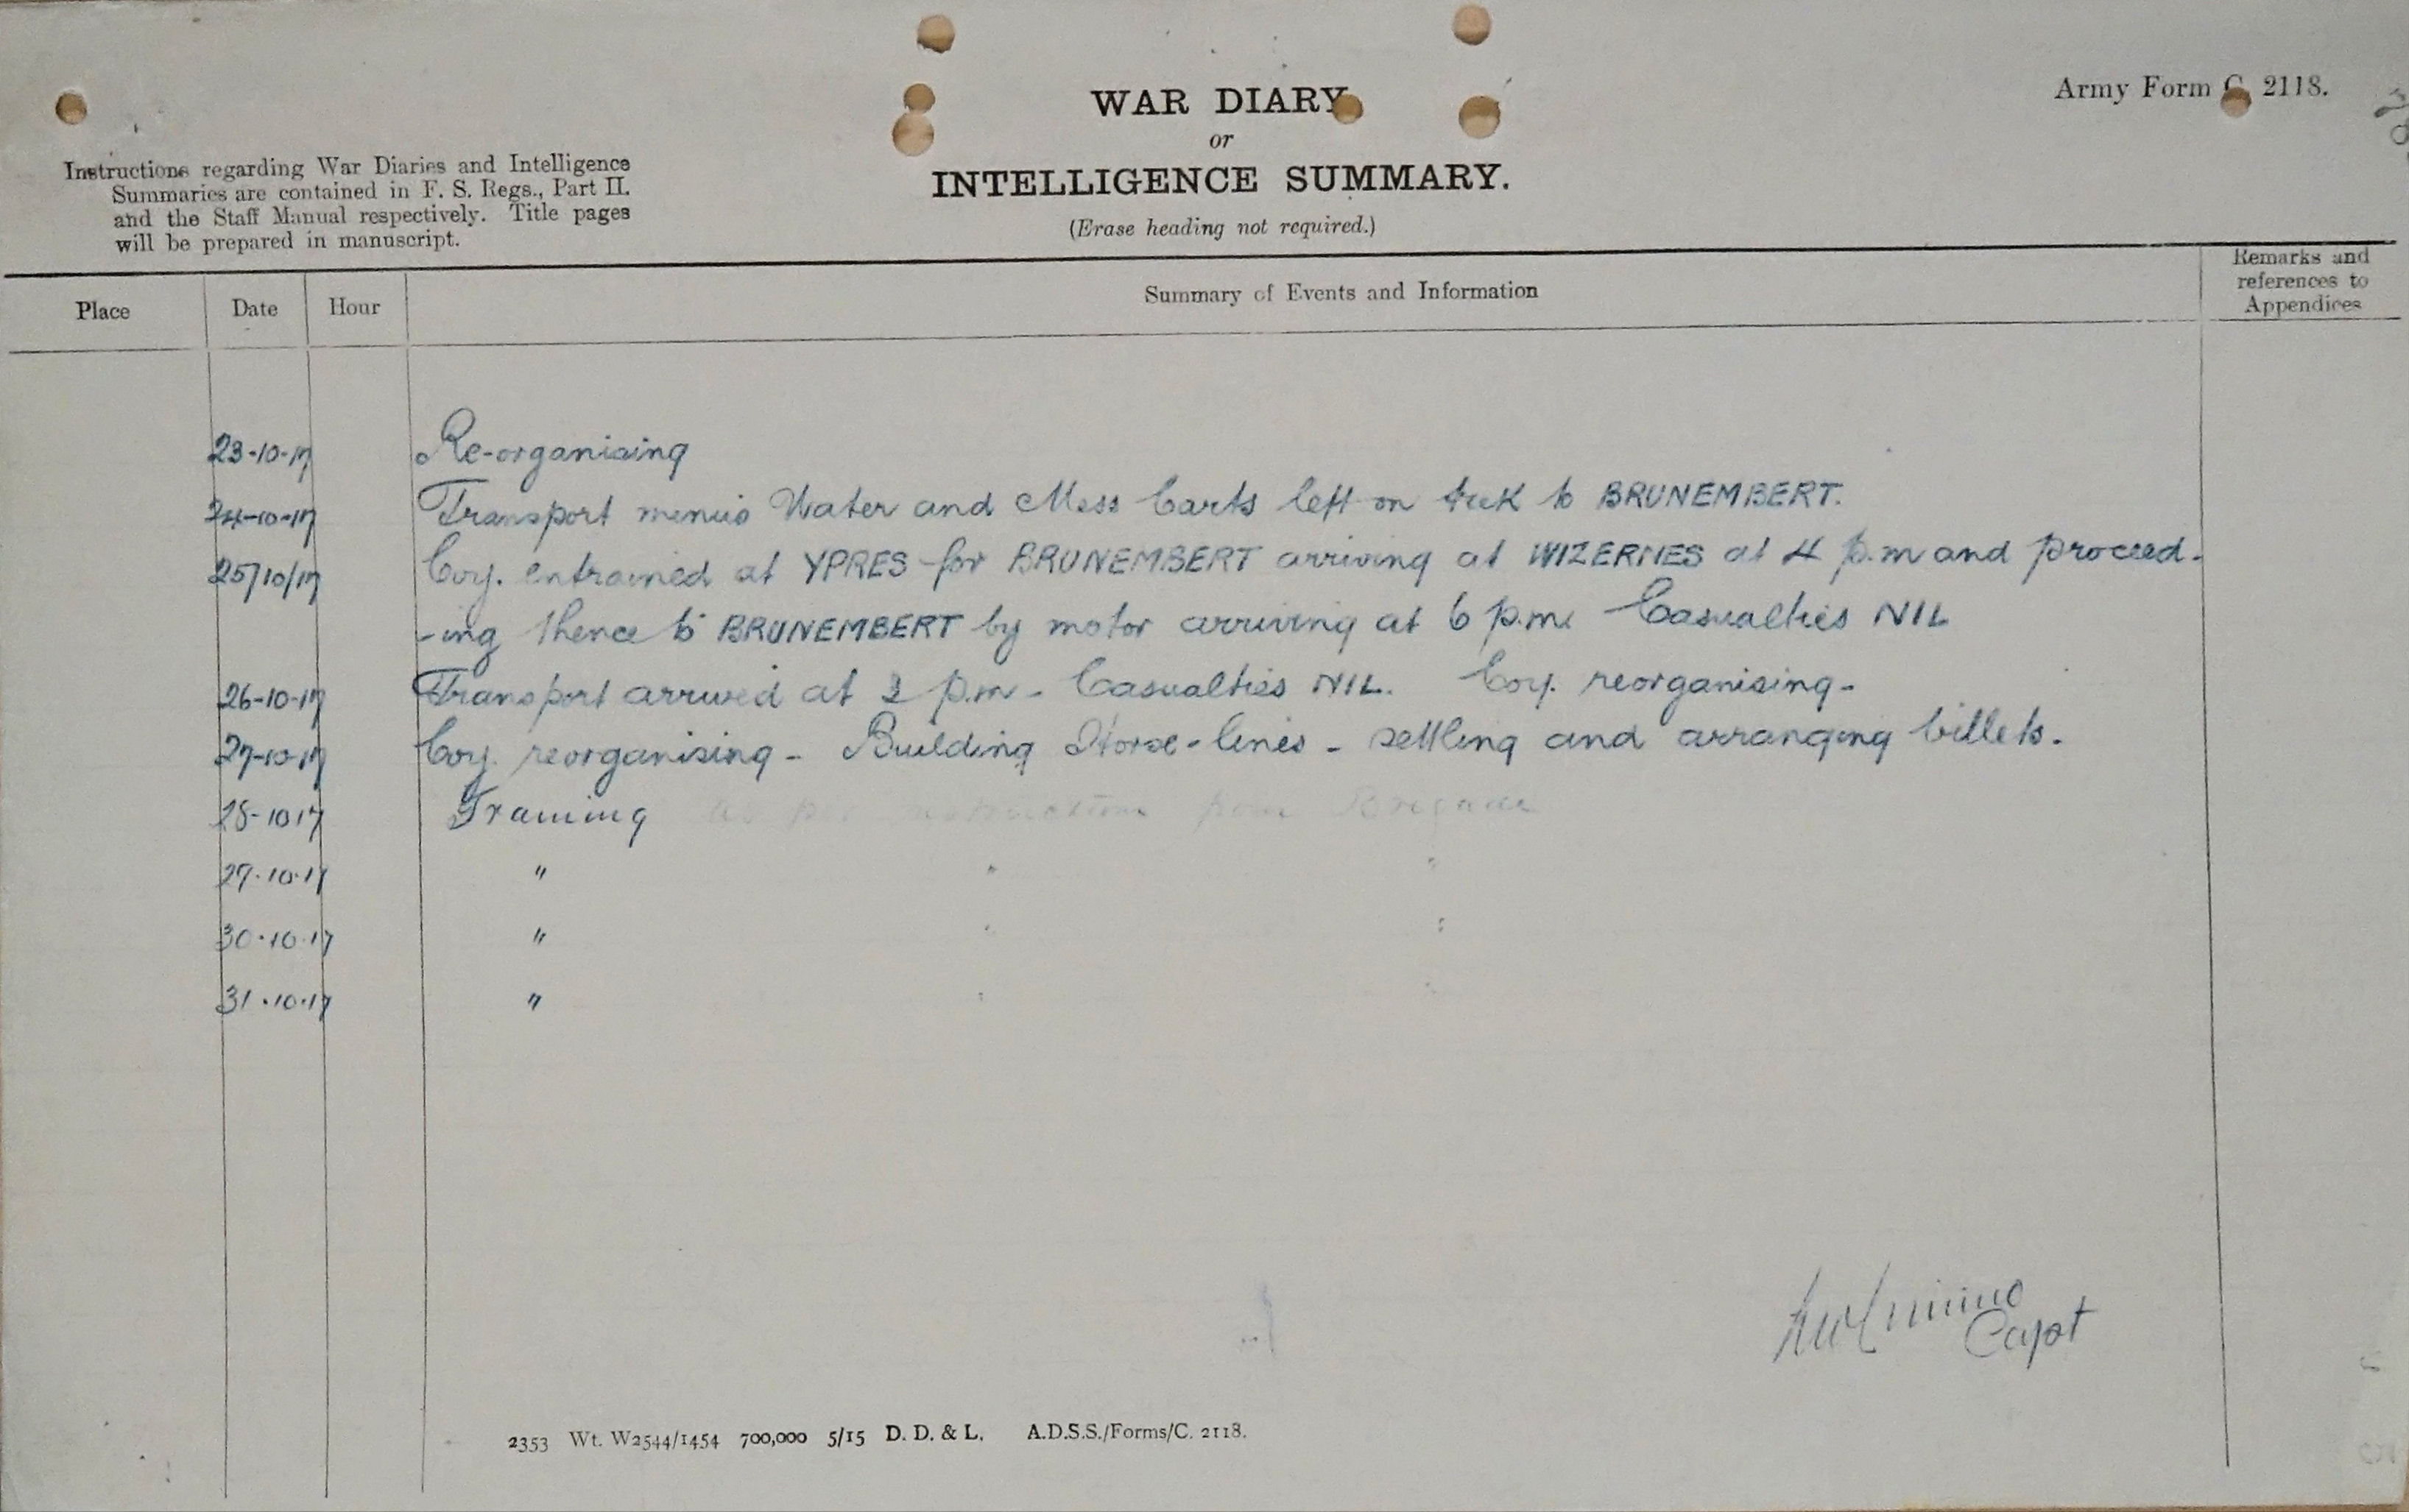 Army Form C. 2118.
WAR DIARY
or
INTELLIGENCE SUMMARY.
(Erase heading not required.)
Instructions regarding War Diaries and Intelligence
Summaries are contained in F. S. Regs., Part II.
and the Staff Manual respectively. Title pages
will be prepared in manuscript.
Place Date Hour Summary of Events and Information Remarks and
references to
Appendices
23-10-17 Re-organising
24-10-17 Transport minus Water and Mess Carts left on trek to BRUNEMBERT.
25/10/17 Coy. entrained at YPRES for BRUNEMBERT arriving at WIZERNES at 4 p.m and proceed-
-ing thence to BRUNEMBERT by motor arriving at 6 p.m. Casualties NIL
26-10-17 Transport arrived at 2 p.m - Casualties NIL. Coy. reorganising -
27-10-17 Coy. reorganising - Building Horse-lines - settling and arranging billets.
28-10 17 Training as per instructions from Brigade
29.10.17 " " "
30.10.17 " " "
31.10.17 " " "
Capt
2353 Wt. W2544/1454 700,000 5/15 D. D. & L. A.D.S.S./Forms/C. 2118.